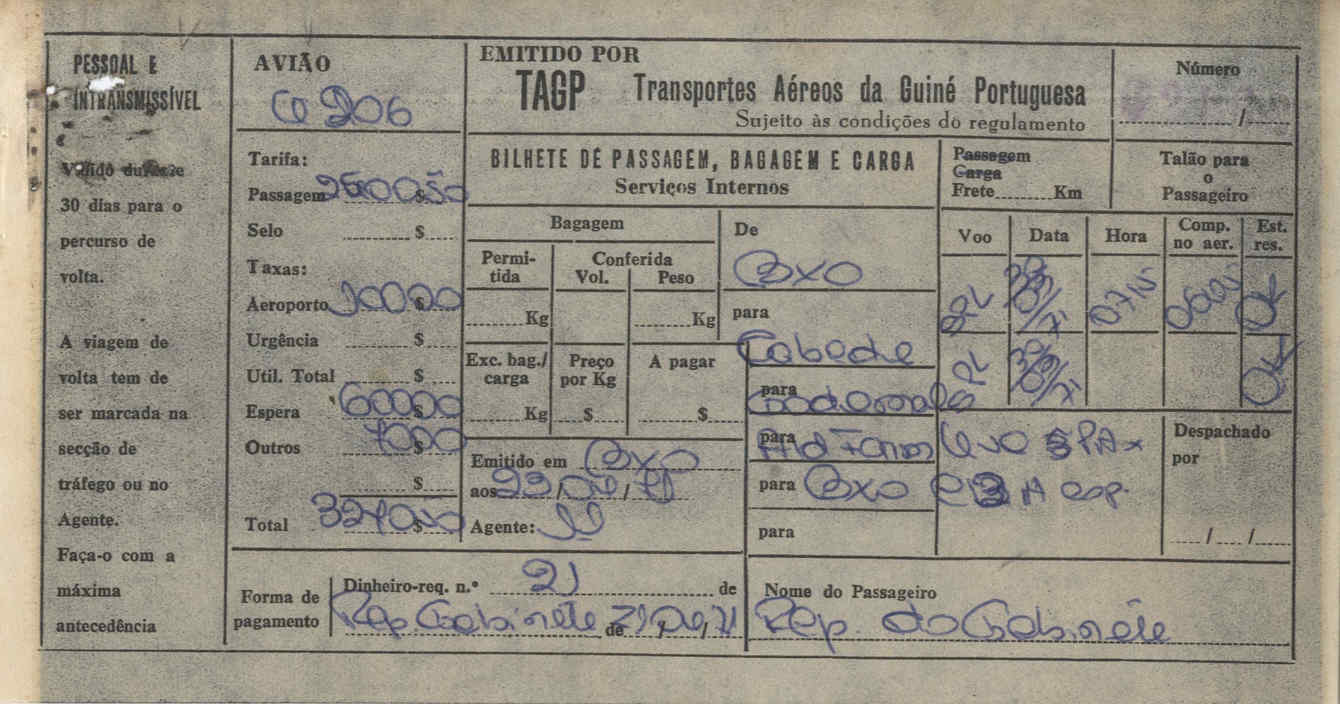 PESSOAL E
INTRANSMISSÍVEL
Válido durante
30 dias para o
percurso de
volta.
A viagem de
volta tem de
ser marcada na
secção de
tráfego ou no
Agente.
Faça-o com a
máxima
antecedência
AVIÃO
206
Tarifa:
Passagem $
Selo $
Taxas:
Aeroporto $
Urgência $
Util. Total $
Espera 60000
Outros $
$
Total $
EMITIDO POR
TAGP Transportes Aéreos da Guiné Portuguesa
Sujeito às condições do regulamento
Número
/
BILHETE DE PASSAGEM, BAGAGEM E CARGA
Serviços Internos
Passagem
Carga
Frete Km
Talão para
o
Passageiro
Bagagem
Permi-
tida
Conferida
Vol. Peso
Kg Kg
Exc. bag./
carga
Preço
por Kg
A pagar
Kg $ $
De
Bxo
para
para
para
para Bxo
para
Voo Data Hora Comp.
no aer. Est.
res.
0715
OK
OK
Despachado
por
/ /
Emitido em Bxo
aos
Agente:
Forma de
pagamento
Dinheiro-req. n.º 21 de
Rep. Gabinete de
Nome do Passageiro
Rep. do Gabinete